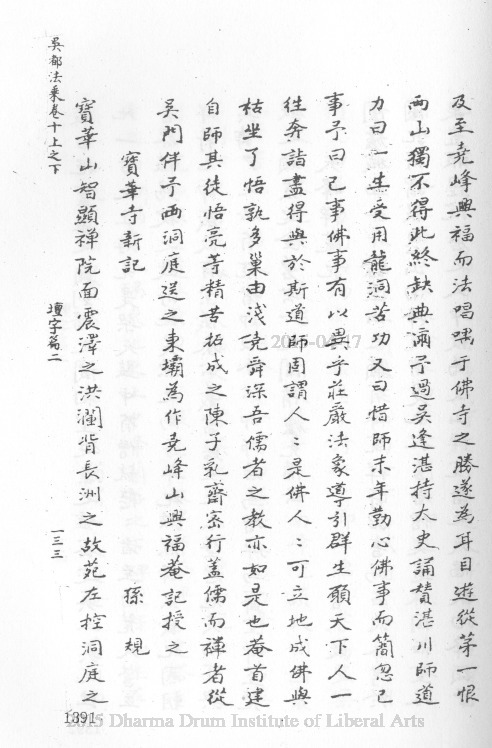 及至堯峰興福而法唱喁于佛寺之勝遂為耳目遊從第一恨
兩山獨不得此終缺典滿予過吳逢湛持太史誦贊湛川師道
力曰一生受用龍洞苦功又曰惜師末年勤心佛事而簡忽己
事予曰己事佛事有以異乎莊嚴法象導引群生願天下人一
徃奔詣盡得與於斯道師固謂人：是佛人：可立地成佛與
枯坐了悟孰多巢由淺克舜深吾儒者之教亦如是也菴首建
自師其徒悟亮等精苦拓成之陳子乳齋密行蓋儒而禪者從
吳門伴予兩洞庭送之東壩為作堯峰山興福菴記授之
寶華寺新記 孫覿
寶華山智顯禪院面震澤之洪瀾背長洲之故苑左控洞庭之
吳都法乘卷十上之下
壇字篇二
一三三
1391
2015-04-17
2015 Dharma Drum Institute of Liberal Arts